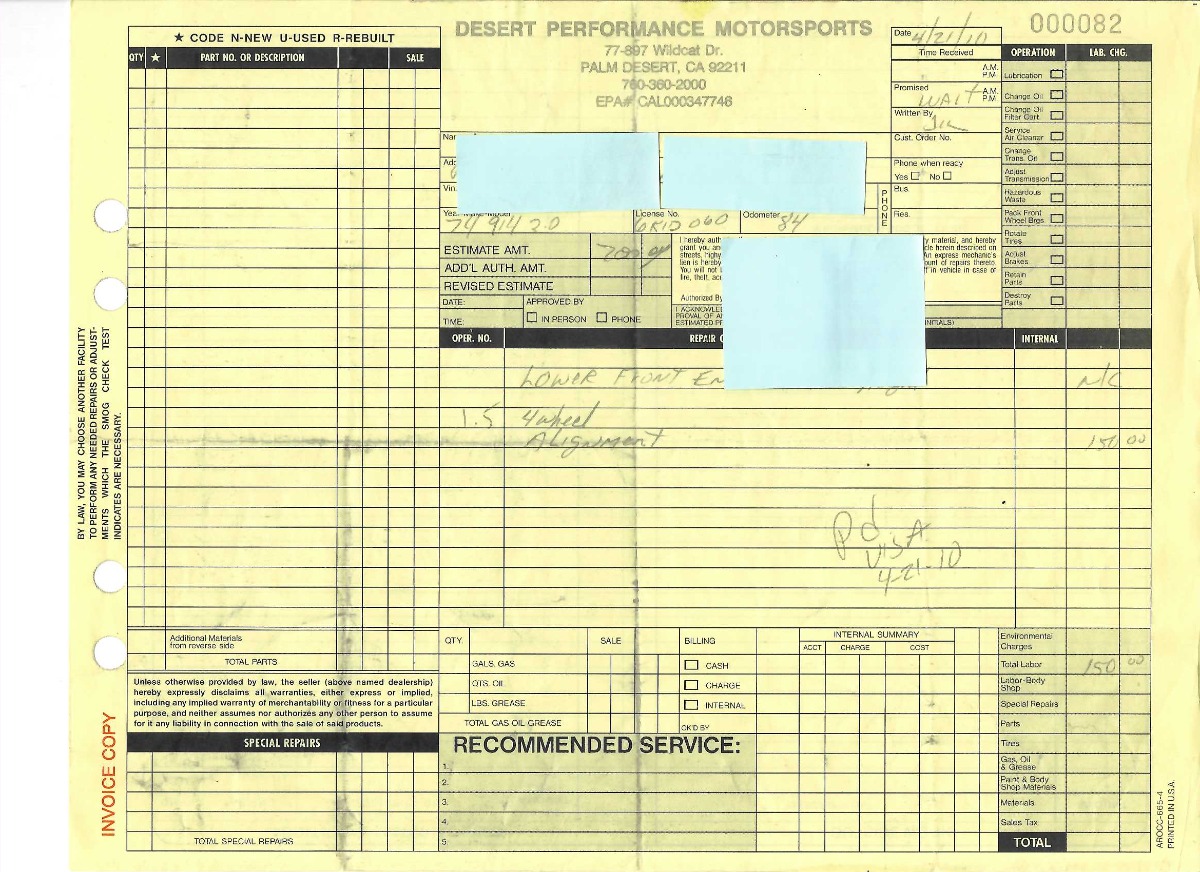 ★ CODE N-NEW U-USED R-REBUILT
QTY ★ PART NO. OR DESCRIPTION SALE
DESERT PERFORMANCE MOTORSPORTS
77-897 Wildcat Dr.
PALM DESERT, CA 92211
760-360-2000
EPA# CAL000347746
000082
Date 4/21/10
Time Received
A.M.
P.M.
Promised WAIT A.M.
P.M.
Written By
Cust. Order No.
Phone when ready
Yes No
PHONE
Bus.
Res.
OPERATION LAB. CHG.
Lubrication
Change Oil
Change Oil
Filter Cart.
Service
Air Cleaner
Change
Trans. Oil
Adjust
Transmission
Hazardous
Waste
Pack Front
Wheel Brgs.
Rotate
Tires
Adjust
Brakes
Retain
Parts
Destroy
Parts
Vin.
License No. Odometer
74 914 2.0 6RID060 84
ESTIMATE AMT. 200.00
ADD'L AUTH. AMT.
REVISED ESTIMATE
DATE: APPROVED BY
TIME: IN PERSON PHONE
I hereby auth
grant you and
streets, highw
lien is hereby
You will not
fire, theft, acc
Authorized By
I ACKNOWLE
PROVAL OF A
ESTIMATED PR
y material, and hereby
cle herein described on
An express mechanic's
ount of repairs thereto.
ft in vehicle in case of
INITIALS)
OPER. NO. REPAIR INTERNAL
Lower Front En N/C
1.5 4 wheel
Alignment 150 00
Pd
VISA
4-21-10
BY LAW, YOU MAY CHOOSE ANOTHER FACILITY
TO PERFORM ANY NEEDED REPAIRS OR ADJUST-
MENTS WHICH THE SMOG CHECK TEST
INDICATES ARE NECESSARY.
Additional Materials
from reverse side
TOTAL PARTS
Unless otherwise provided by law, the seller (above named dealership)
hereby expressly disclaims all warranties, either express or implied,
including any implied warranty of merchantability or fitness for a particular
purpose, and neither assumes nor authorizes any other person to assume
for it any liability in connection with the sale of said products.
SPECIAL REPAIRS
TOTAL SPECIAL REPAIRS
INVOICE COPY
QTY. SALE
GALS. GAS
QTS. OIL
LBS. GREASE
TOTAL GAS OIL GREASE
BILLING
CASH
CHARGE
INTERNAL
CK'D BY
INTERNAL SUMMARY
ACCT CHARGE COST
RECOMMENDED SERVICE:
1.
2.
3.
4.
5.
Environmental
Charges
Total Labor 150 00
Labor-Body
Shop
Special Repairs
Parts
Tires
Gas, Oil
& Grease
Paint & Body
Shop Materials
Materials
Sales Tax
TOTAL
AROCC-665-4
PRINTED IN U.S.A.